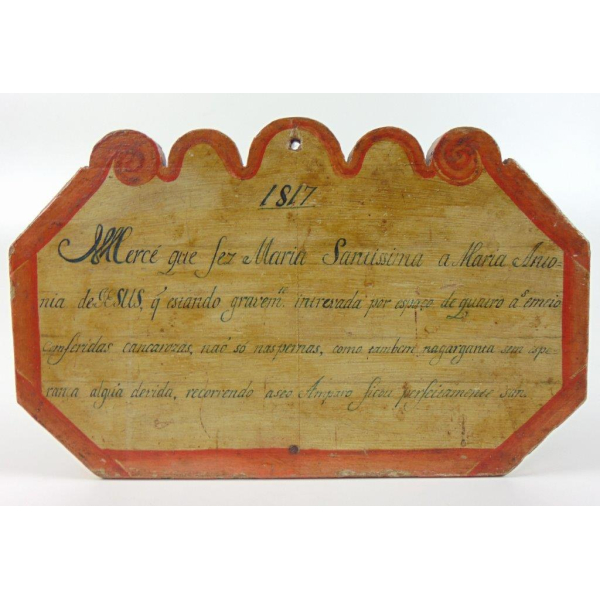 1817
Mercê que fez Maria Santissima a Maria Anto-
nia de JESUS, q̃ estando gravem.te intrevada por espaço de quatro a.s emeio
comferidas cancarozas, naõ só naspernas, como tambem nagarganta sem espe-
rança algũa devida, recorrendo aseo Amparo ficou perfeitamente sam